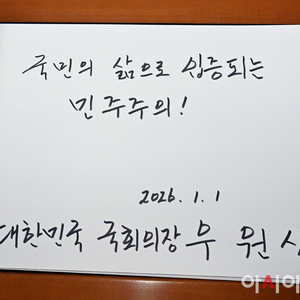 국민의 삶으로 입증되는
민주주의!
2026.1.1
대한민국 국회의장 우 원
아시아